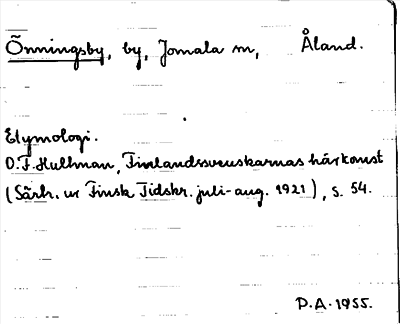 Önningsby, by, Jomala m, Åland.
Etymologi.
O.F. Hultman, Finlandssvenskarnas härkomst
(Särtr. ur Finsk Tidskr. juli-aug. 1921), s. 54.
P.A. 1955.